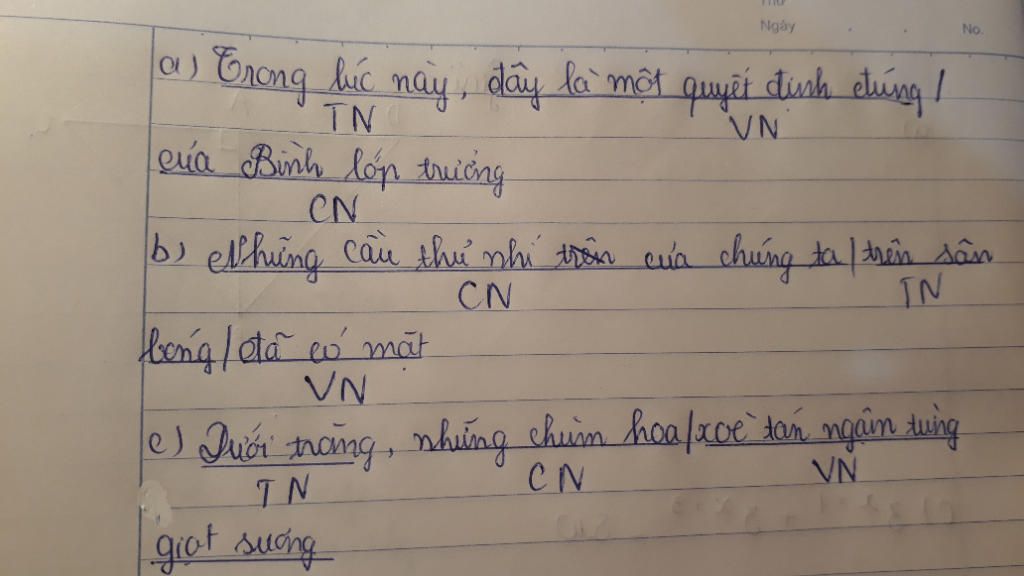 Thứ
Ngày . . No.
a) Trong lúc này, đây là một quyết định đúng /
TN VN
của Bình lớp trưởng
CN
b) Những cầu thủ nhí trên của chúng ta / trên sân
CN TN
bóng / đã có mặt
VN
c) Dưới trăng, những chùm hoa / xoè tán ngậm từng
TN CN VN
giọt sương